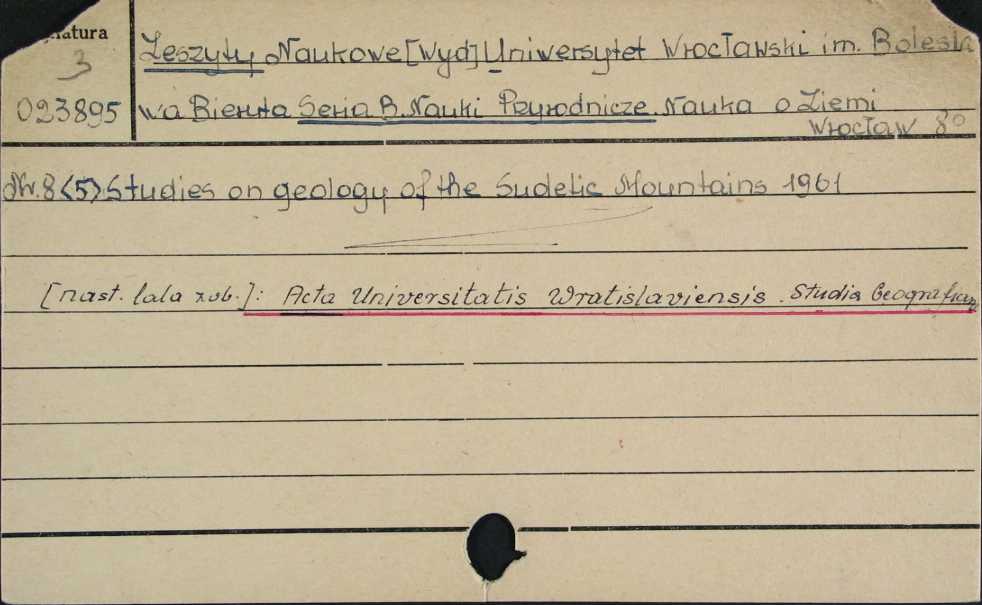 natura
3
023895
Zeszyty Naukowe [Wyd] Uniwersytet Wrocławski im. Bolesła
wa Bieruta Seria B. Nauki Przyrodnicze. Nauka o Ziemi
Wrocław 8°
Nr. 8 (5) Studies on geology of the Sudetic Mountains 1961
[nast. lata zob.]: Acta Universitatis Wratislaviensis. Studia Geograficzne